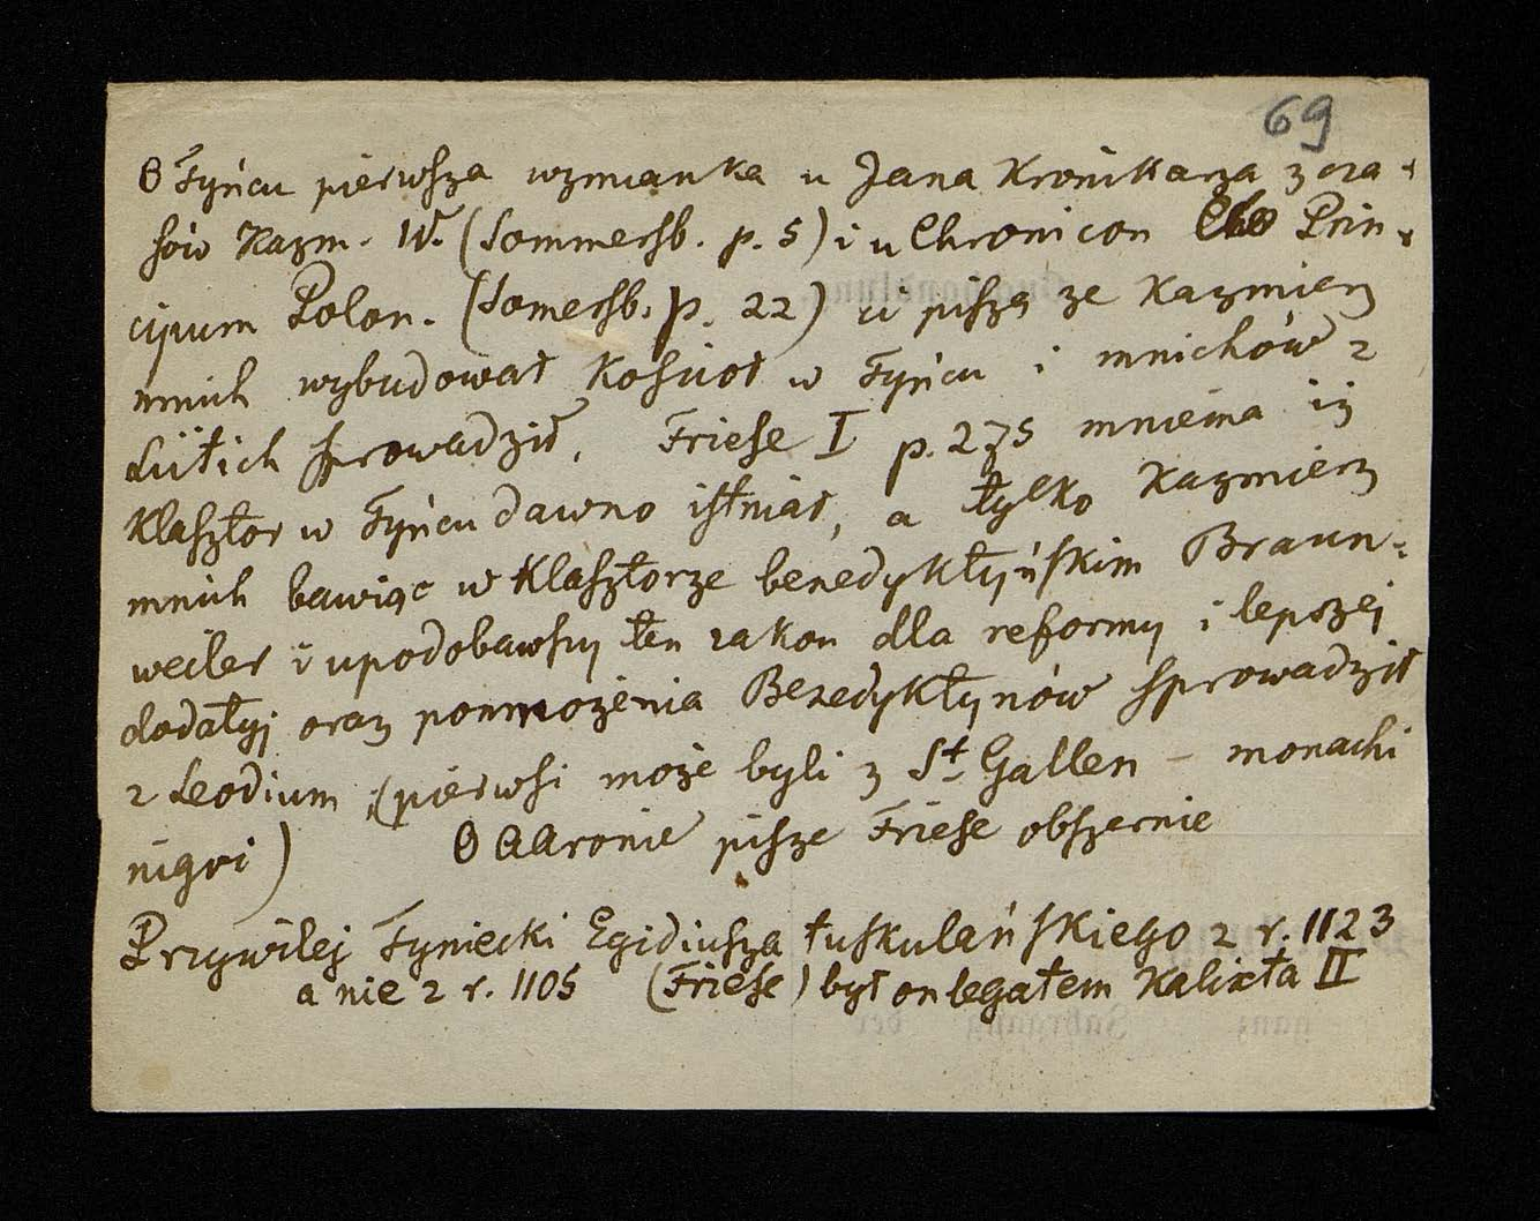 69
O Tyńcu pierwsza wzmianka u Jana Kronikarza z cza-
sów Kazm. W. (Sommersb. p. 5) i u Chronicon Prin-
cipum Polon. (Somersb. p. 22) ci piszą ze Kazmierz
mnich wybudował Kościoł w Tyńcu i mnichów z
Lüttich sprowadził. Friese I p. 275 mniema iż
Klasztor w Tyńcu dawno istniał, a tylko Kazmierz
mnich bawiąc w Klasztorze benedyktyńskim Braun-
weiler i upodobawszy ten zakon dla reformy i lepszej
dodatyj oraz pomnożenia Benedyktynów sprowadził
z Leodium (pierwsi może byli z St Gallen - monachi
nigri) O Aaronie pisze Friese obszernie
Przywilej Tyniecki Egidiusza tuskulańskiego z r. 1123
a nie z r. 1105 (Friese) był on legatem Kalixta II